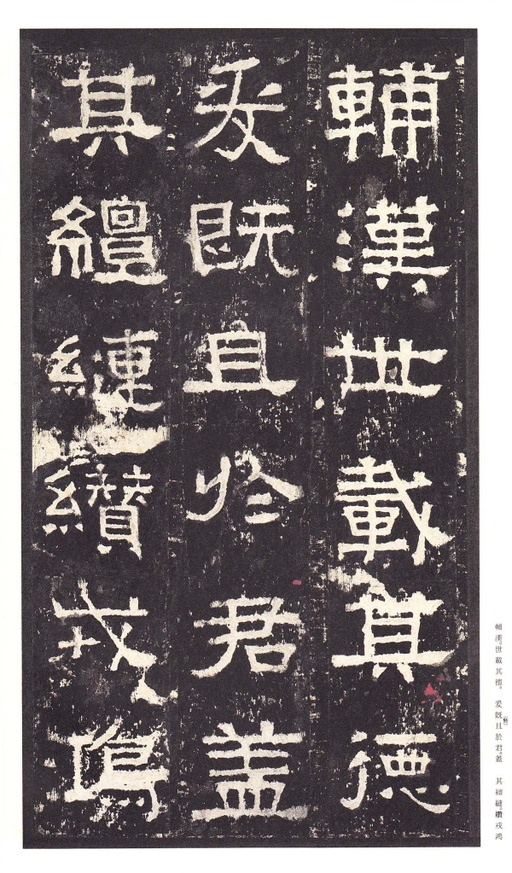 輔漢世載其德
爰既且於君盖
其繵縺纘戎鴻
輔漢。世載其德。 爰既且於君。蓋 其繵縺。纘戎鴻